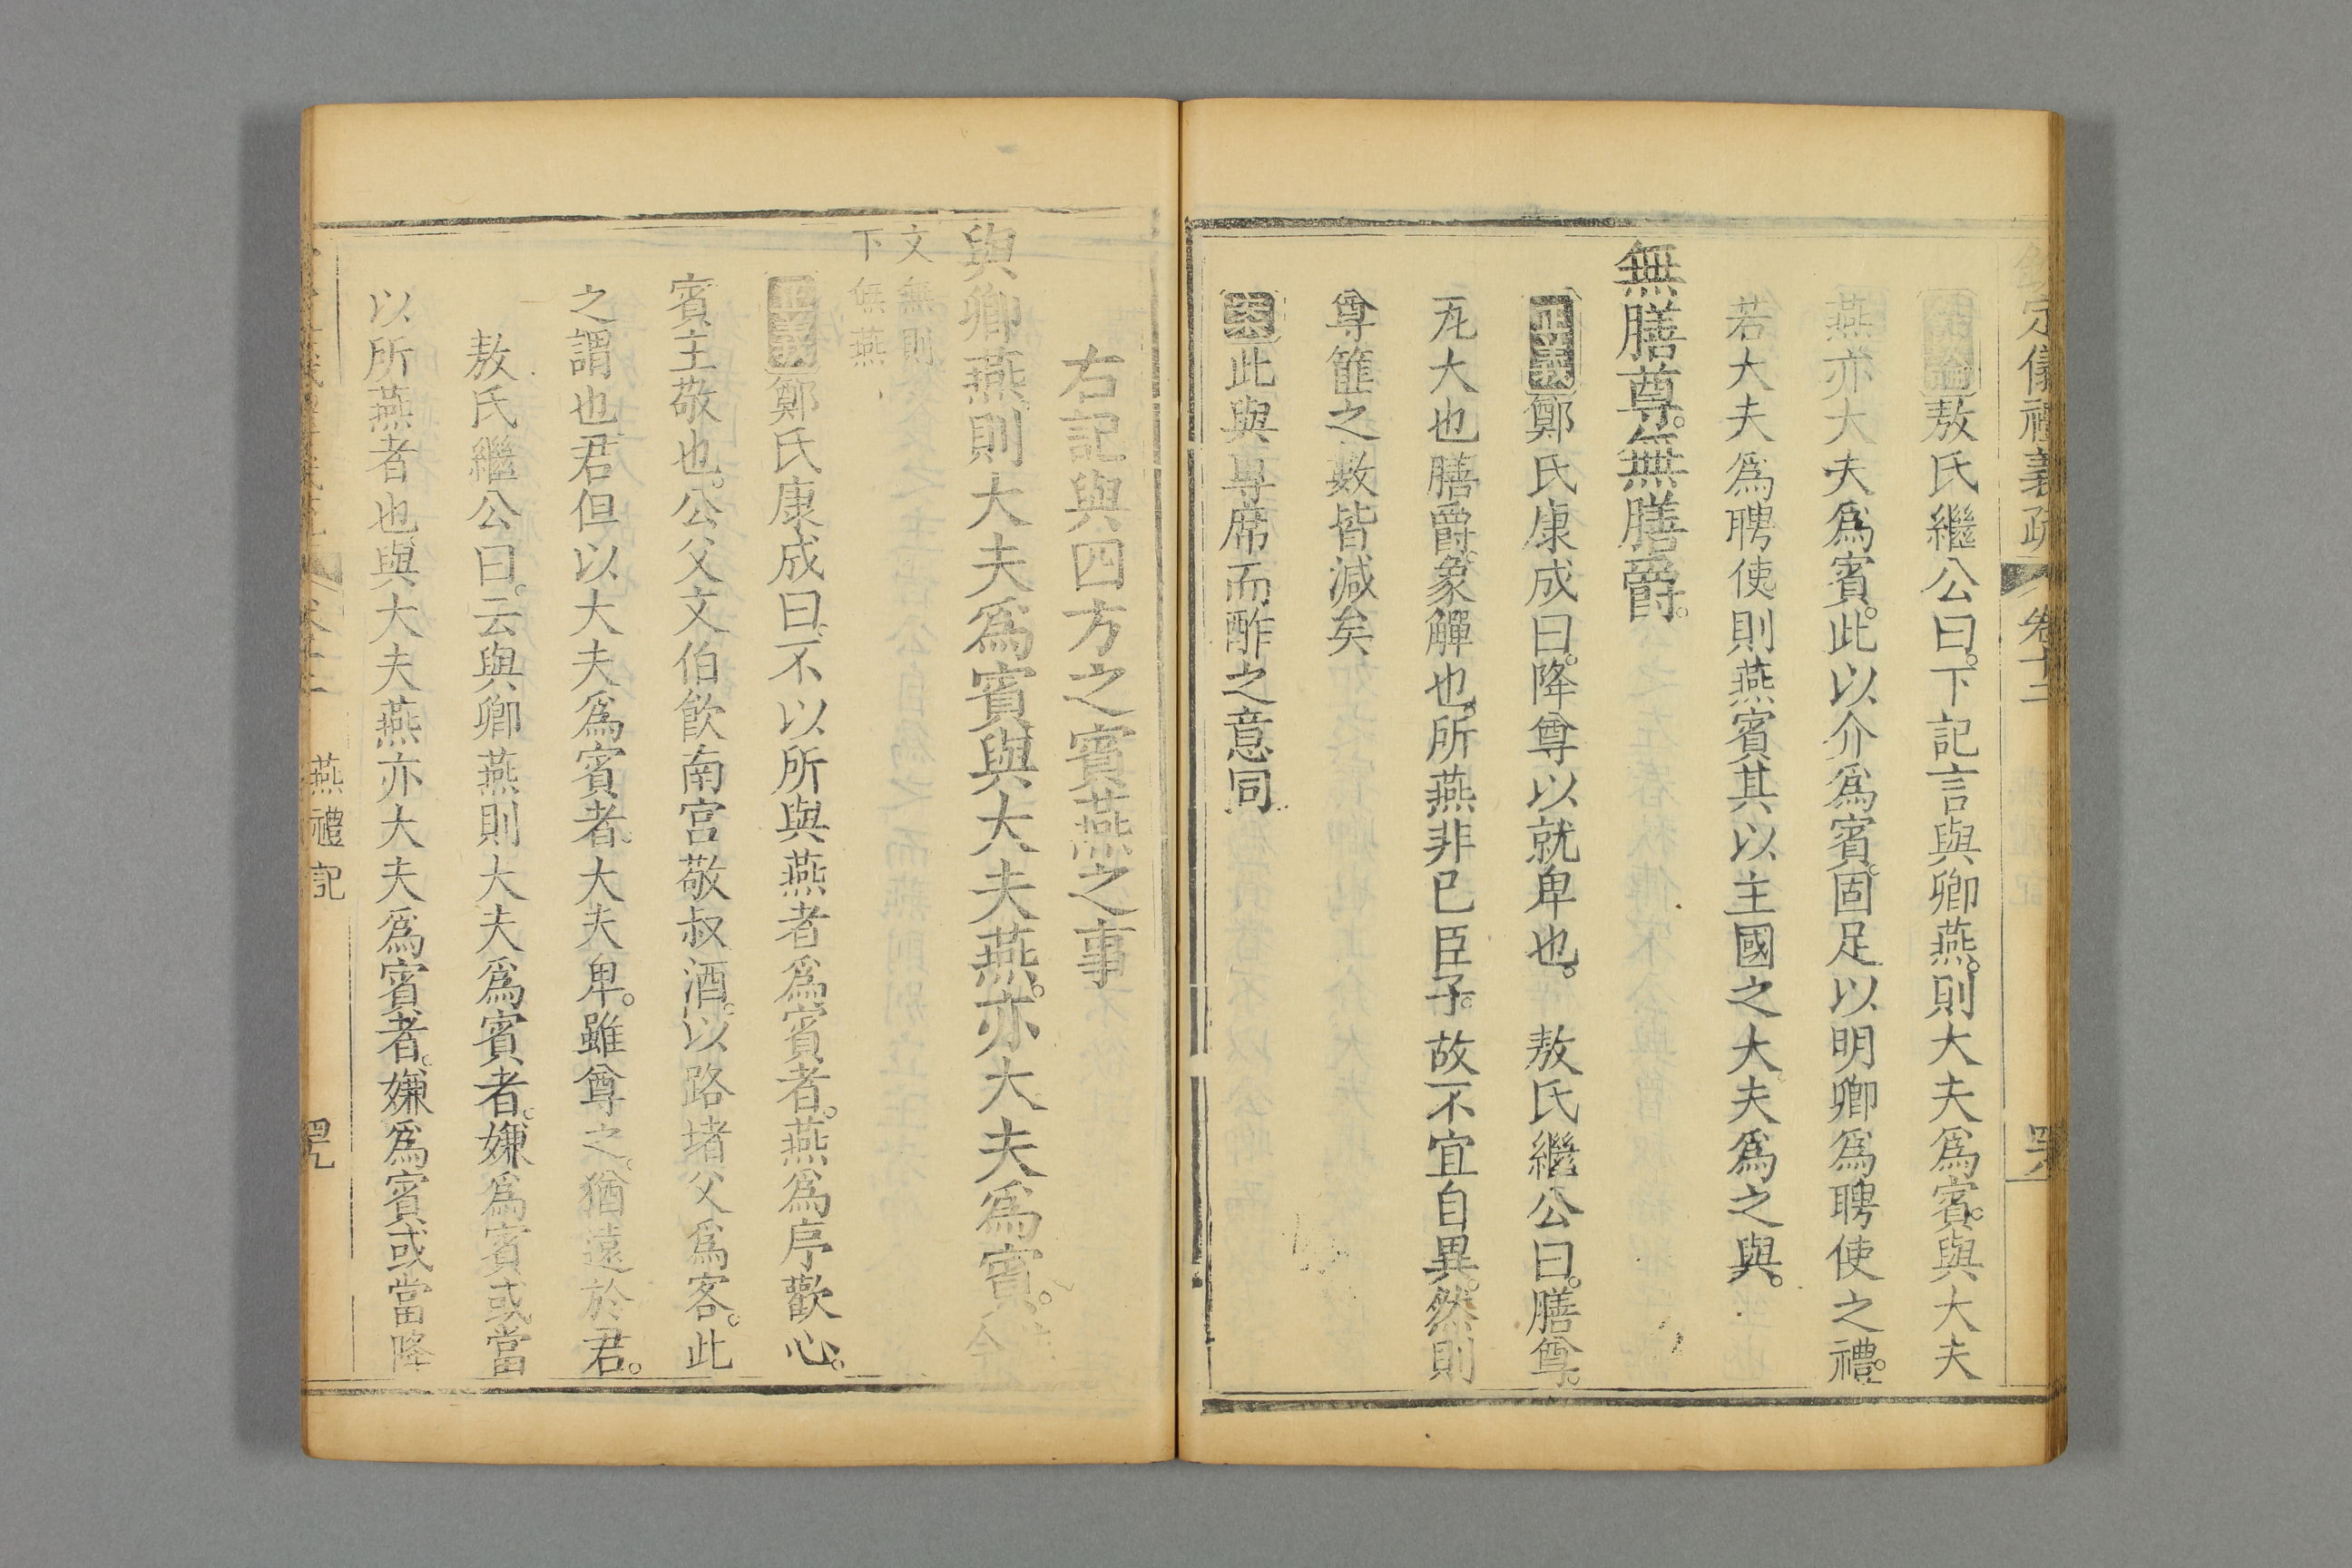 欽定儀禮義疏 卷十二
敖氏繼公曰。下記言與卿燕。則大夫爲賓。與大夫
燕亦大夫爲賓。此以介爲賓。固足以明卿爲聘使之禮。
若大夫爲聘使則燕賓其以主國之大夫爲之與。
無膳尊。無膳爵。
正義鄭氏康成曰。降尊以就卑也。 敖氏繼公曰。膳尊。
瓦大也膳爵。象觶也。所燕非已臣子。故不宜自異。然則
尊篚之數皆減矣
案此與專席而酢之意同
右記與四方之賓燕之事
與卿燕則大夫爲賓與大夫燕。亦大夫爲賓。今
文無則
下無燕
正義鄭氏康成曰。不以所與燕者爲賓者。燕爲序歡心。
賓主敬也。公父文伯飮南宮敬叔酒。以路堵父爲客。此
之謂也君但以大夫爲賓者。大夫卑。雖尊之。猶遠於君。
敖氏繼公曰。云與卿燕則大夫爲賓者。嫌爲賓或當
以所燕者也。與大夫燕亦大夫爲賓者。嫌爲賓或當降
燕禮記